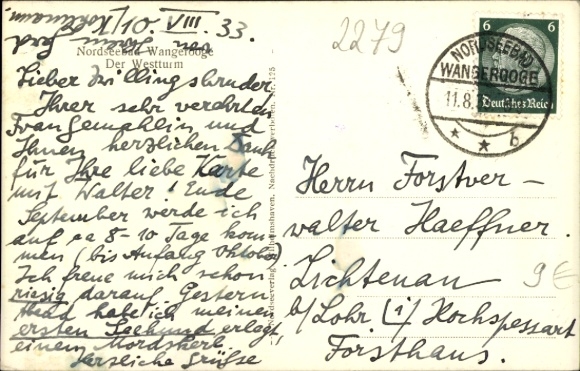 10. VIII. 33.
Nordseebad Wangerooge
Der Westturm
Lieber Zwillingsbruder
Ihrer sehr verehrten
Frau Gemahlin und
Ihnen herzlichen Dank
für Ihre liebe Karte
mit Walter! Ende
September werde ich
auf ca 8-10 Tage kom-
men (bis Anfang Oktober)
Ich freue mich schon
riesig darauf. Gestern
Abend habe ich meinen
ersten Seehund erlegt,
einen Mordskerl.
Herzliche Grüße
2279
6 6
Deutsches Reich
NORDSEEBAD
WANGEROOGE
11.8.
b
Herrn Forstver-
walter Haeffner.
Lichtenau
b/Lohr (i/ Hochspessart
Forsthaus.
9€